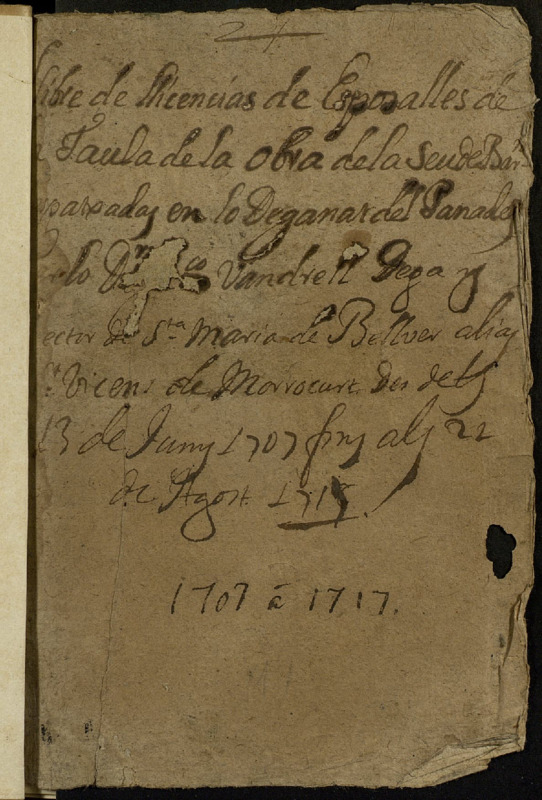 llibre de llicencias de Esposalles de
la Taula de la obra de la Seu de Bar.ª
en lo Deganat del Panades
lo Vandrell Dega y
Rector de S.ta Maria de Bellver alias
S.t Vicens de Morrocurt Des dels
13 de Juny 1707 fins als 22
de Agost 1717.
1707 â 1717.